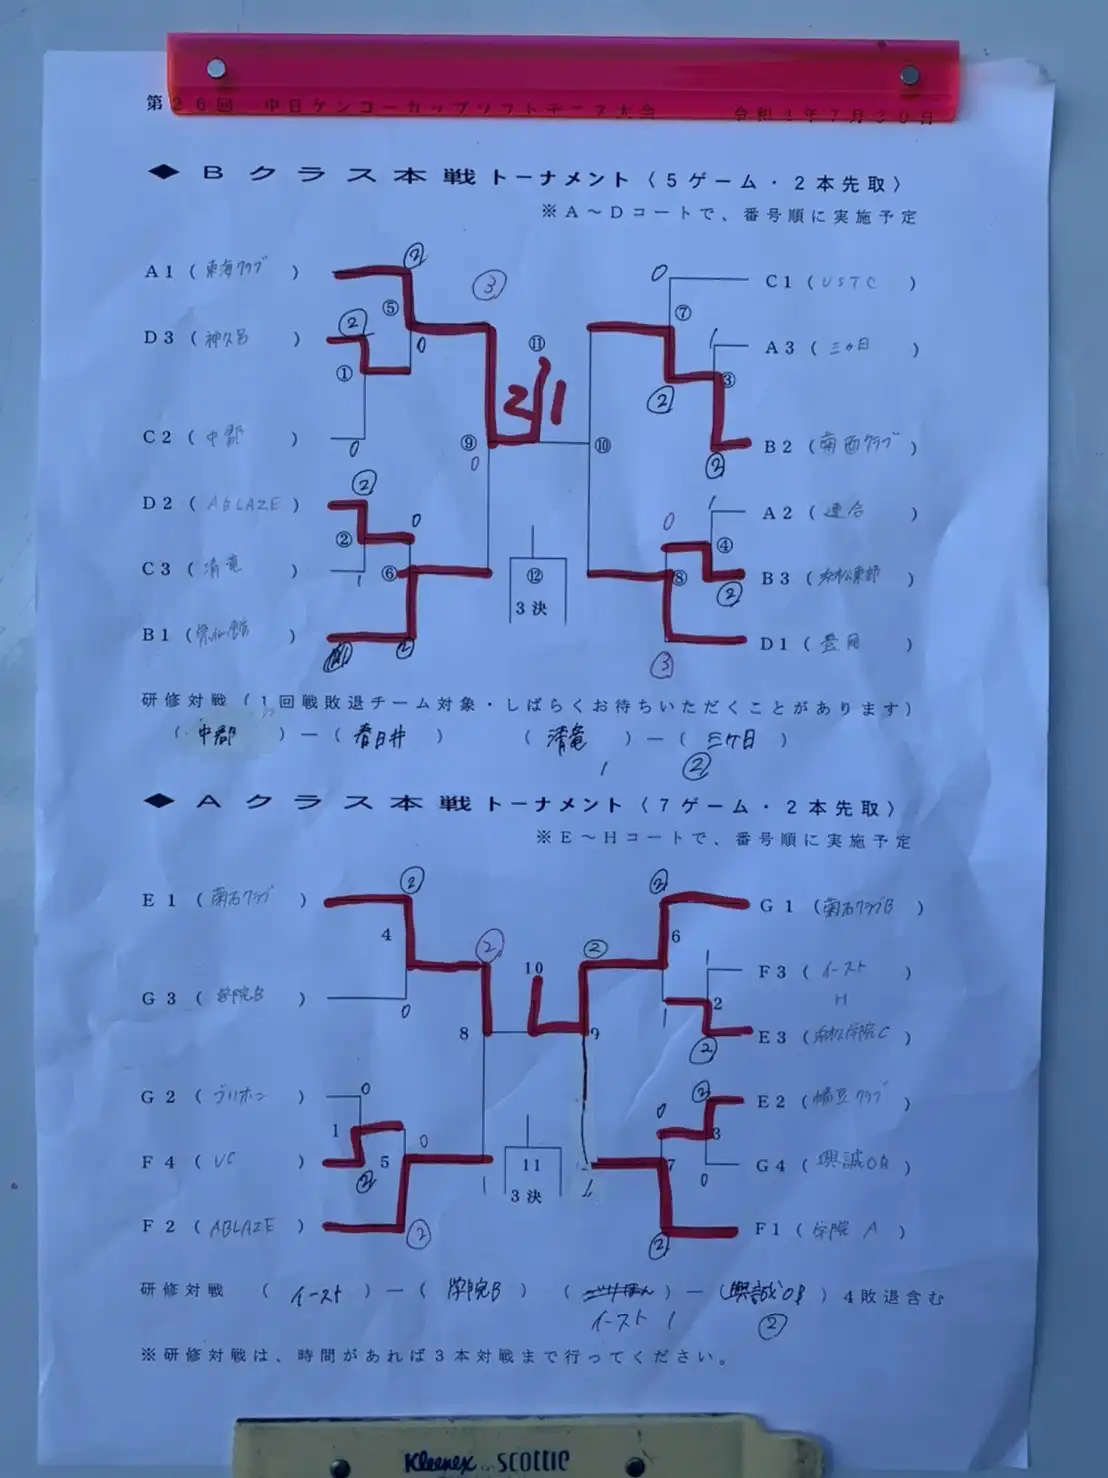 第26回 中日ケンコーカップソフトテニス大会 令和4年7月30日
◆Bクラス本戦トーナメント（5ゲーム・2本先取）
※A～Dコートで、番号順に実施予定
② ③ 0
A1（東海クラブ） C1（USTC）
⑤ ⑦
D3（神久呂） ② 0 ⑪ 1 A3（三ケ日）
① 2 1 ② ③
C2（中郡） 0 ⑨ 0 ⑩ ② B2（菊西クラブ）
D2（ABLAZE） ② 0 0 1 A2（連合）
② ④
C3（清竜） 1 ⑥ ⑫ ⑧ ② B3（浜松東部）
3決
B1（） ② ③ D1（豊岡）
研修対戦（1回戦敗退チーム対象・しばらくお待ちいただくことがあります）
（中郡）―（春日井） （清竜）―（三ケ日）
1 ②
◆Aクラス本戦トーナメント（7ゲーム・2本先取）
※E～Hコートで、番号順に実施予定
E1（菊石クラブ） ② ② G1（菊石クラブB）
4 ② ② 6
10 1 F3（イースト）
G3（学院B） 0 1 2 H
8 9 ② E3（浜松学院C）
G2（ブリオン） 0 0 ② E2（幡豆クラブ）
1 0 3
F4（UC） ② 5 1 11 1 7 0 G4（興誠OB）
3決
F2（ABLAZE） ② ② F1（学院A）
研修対戦 （イースト）―（学院B） （）―（興誠OB）4敗退含む
イースト 1 ②
※研修対戦は、時間があれば3本対戦まで行ってください。
Kleenex SCOTTIE